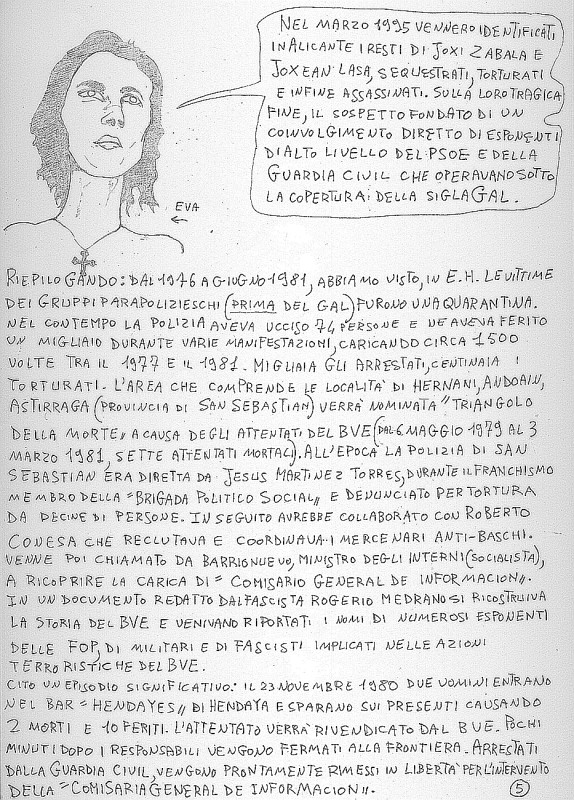 NEL MARZO 1995 VENNERO IDENTIFICATI
IN ALICANTE I RESTI DI JOXI ZABALA E
JOXEAN LASA, SEQUESTRATI, TORTURATI
E INFINE ASSASSINATI. SULLA LORO TRAGICA
FINE, IL SOSPETTO FONDATO DI UN
COINVOLGIMENTO DIRETTO DI ESPONENTI
DI ALTO LIVELLO DEL PSOE E DELLA
GUARDIA CIVIL CHE OPERAVANO SOTTO
LA COPERTURA DELLA SIGLA GAL.
EVA
RIEPILOGANDO: DAL 1976 A GIUGNO 1981, ABBIAMO VISTO, IN E.H. LE VITTIME
DEI GRUPPI PARAPOLIZIESCHI (PRIMA DEL GAL) FURONO UNA QUARANTINA.
NEL CONTEMPO LA POLIZIA AVEVA UCCISO 74 PERSONE E NE AVEVA FERITO
UN MIGLIAIO DURANTE VARIE MANIFESTAZIONI, CARICANDO CIRCA 1500
VOLTE TRA IL 1977 E IL 1981. MIGLIAIA GLI ARRESTATI, CENTINAIA I
TORTURATI. L'AREA CHE COMPRENDE LE LOCALITA' DI HERNANI, ANDOAIN,
ASTIRRAGA (PROVINCIA DI SAN SEBASTIAN) VERRA' NOMINATA "TRIANGOLO
DELLA MORTE" A CAUSA DEGLI ATTENTATI DEL BVE (DAL 6 MAGGIO 1979 AL 3
MARZO 1981, SETTE ATTENTATI MORTALI). ALL'EPOCA LA POLIZIA DI SAN
SEBASTIAN ERA DIRETTA DA JESUS MARTINEZ TORRES, DURANTE IL FRANCHISMO
MEMBRO DELLA "BRIGADA POLITICO SOCIAL" E DENUNCIATO PER TORTURA
DA DECINE DI PERSONE. IN SEGUITO AVREBBE COLLABORATO CON ROBERTO
CONESA CHE RECLUTAVA E COORDINAVA I MERCENARI ANTI-BASCHI.
VENNE POI CHIAMATO DA BARRIONUEVO, MINISTRO DEGLI INTERNI (SOCIALISTA),
A RICOPRIRE LA CARICA DI "COMISARIO GENERAL DE INFORMACION".
IN UN DOCUMENTO REDATTO DAL FASCISTA ROGERIO MEDRANO SI RICOSTRUIVA
LA STORIA DEL BVE E VENIVANO RIPORTATI I NOMI DI NUMEROSI ESPONENTI
DELLE FOP, DI MILITARI E DI FASCISTI IMPLICATI NELLE AZIONI
TERRORISTICHE DEL BVE.
CITO UN EPISODIO SIGNIFICATIVO: IL 23 NOVEMBRE 1980 DUE UOMINI ENTRANO
NEL BAR "HENDAYES" DI HENDAYA E SPARANO SUI PRESENTI CAUSANDO
2 MORTI E 10 FERITI. L'ATTENTATO VERRA' RIVENDICATO DAL BVE. POCHI
MINUTI DOPO I RESPONSABILI VENGONO FERMATI ALLA FRONTIERA. ARRESTATI
DALLA GUARDIA CIVIL, VENGONO PRONTAMENTE RIMESSI IN LIBERTA' PER L'INTERVENTO
DELLA "COMISARIA GENERAL DE INFORMACION".
5